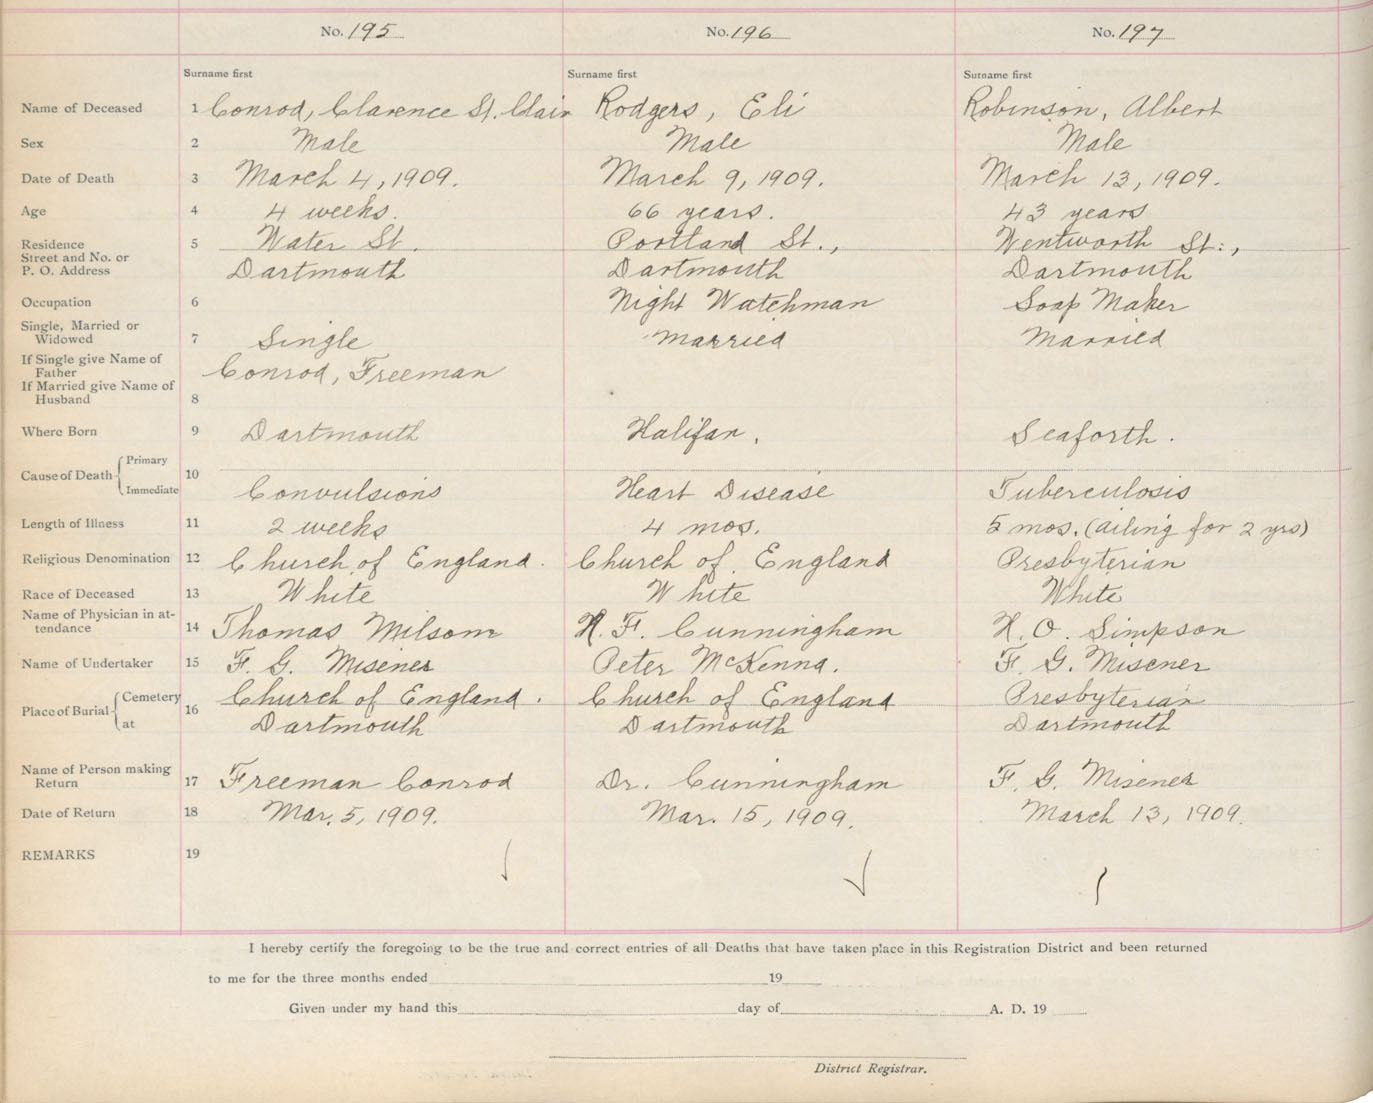 No. 195 No. 196 No. 197
Surname first Surname first Surname first
Name of Deceased 1 Conrod, Clarence St. Clair Rodgers, Eli Robinson, Albert
Sex 2 Male Male Male
Date of Death 3 March 4, 1909. March 9, 1909. March 13, 1909.
Age 4 4 weeks. 66 years. 43 years
Residence 5 Water St. Portland St., Wentworth St.,
Street and No. or
P. O. Address Dartmouth Dartmouth Dartmouth
Occupation 6 Night Watchman Soap Maker
Single, Married or
Widowed 7 Single Married Married
If Single give Name of
Father Conrod, Freeman
If Married give Name of
Husband 8
Where Born 9 Dartmouth Halifax. Seaforth.
Cause of Death Primary 10
Immediate Convulsions Heart Disease Tuberculosis
Length of Illness 11 2 weeks 4 mos. 5 mos. (ailing for 2 yrs)
Religious Denomination 12 Church of England. Church of England Presbyterian
Race of Deceased 13 White White White
Name of Physician in at-
tendance 14 Thomas Milsom H. F. Cunningham H. O. Simpson
Name of Undertaker 15 F. G. Misener Peter McKenna. F. G. Misener
Place of Burial Cemetery 16 Church of England. Church of England Presbyterian
at Dartmouth Dartmouth Dartmouth
Name of Person making
Return 17 Freeman Conrod Dr. Cunningham F. G. Misener
Date of Return 18 Mar. 5, 1909. Mar. 15, 1909. March 13, 1909.
REMARKS 19
I hereby certify the foregoing to be the true and correct entries of all Deaths that have taken place in this Registration District and been returned
to me for the three months ended 19
Given under my hand this day of A. D. 19
District Registrar.